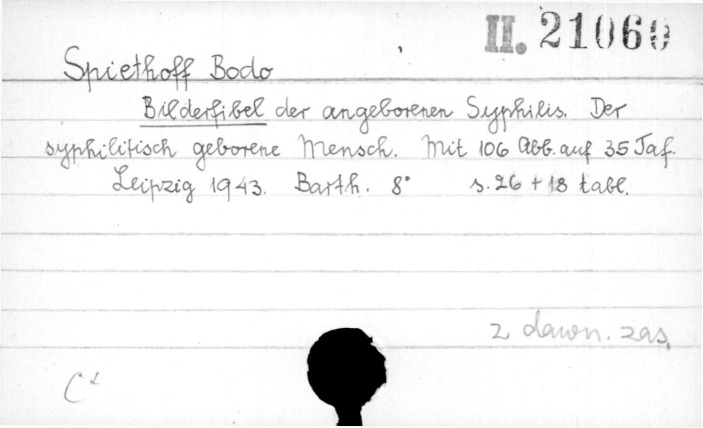 II. 21060
Spiethoff Bodo
Bilderfibel der angeborenen Syphilis. Der
syphilitisch geborene Mensch. Mit 106 Abb. auf 35 Taf.
Leipzig 1943. Barth. 8° s. 26 + 18 tabl.
z dawn. zas.